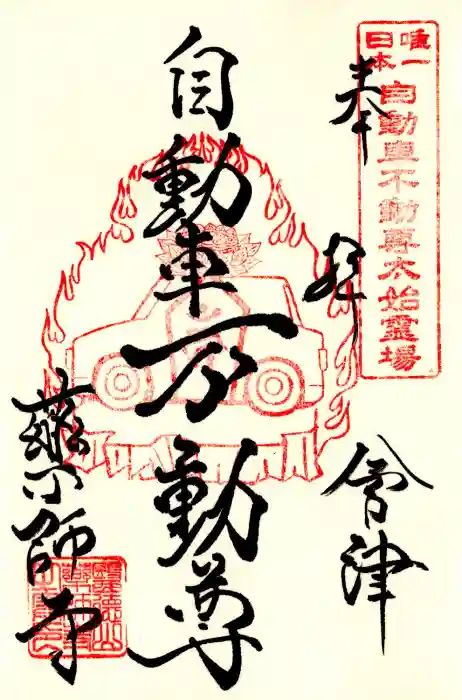 日本唯一
自動車不動尊太始霊場
奉拝
會津
自動車不動尊
薬師寺